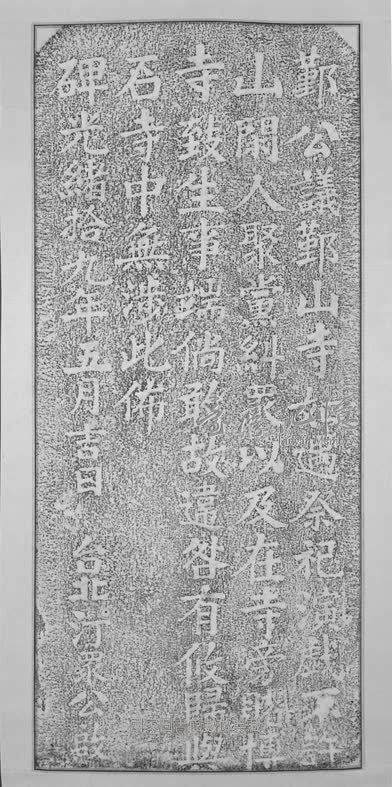 鄞山寺石碑
公議鄞山寺如遇祭祀演戲不許
閒人聚黨糾眾以及在寺旁賭博
致生事端倘敢故違咎有攸歸與
寺中無涉此佈
光緒拾九年五月吉日 台北汀眾公啟